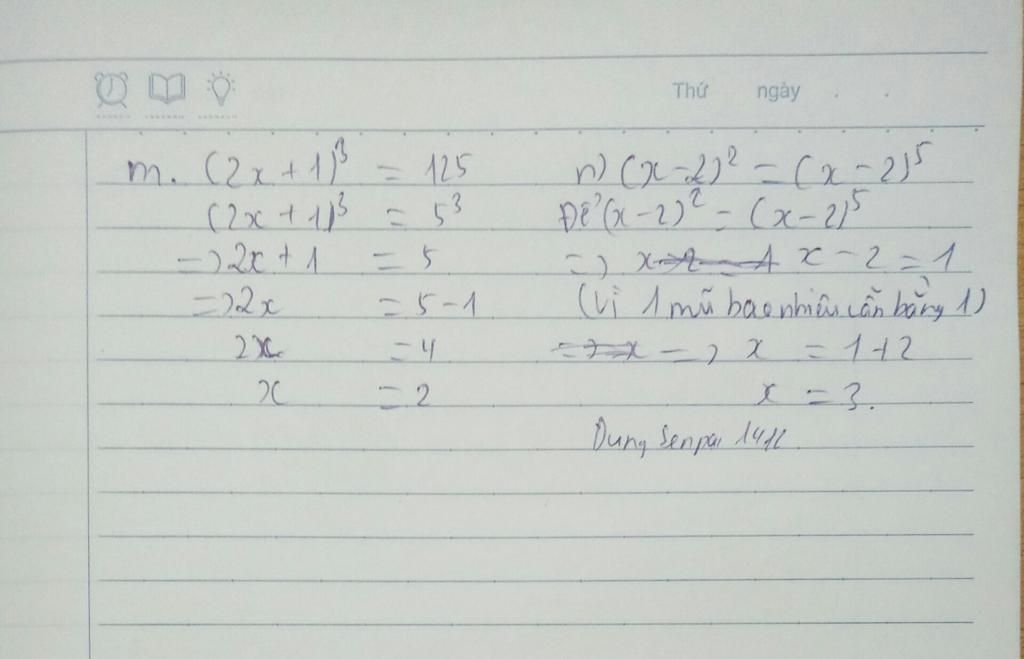 Thứ ngày . .
m. (2x + 1)³ = 125
(2x + 1)³ = 5³
=> 2x + 1 = 5
=> 2x = 5 - 1
2x = 4
x = 2
n) (x - 2)² = (x - 2)⁵
Để (x - 2)² = (x - 2)⁵
=> x - 2 = 1 x - 2 = 1
(Vì 1 mũ bao nhiêu cần bằng 1)
=> x => x = 1 + 2
x = 3.
Dung Senpai